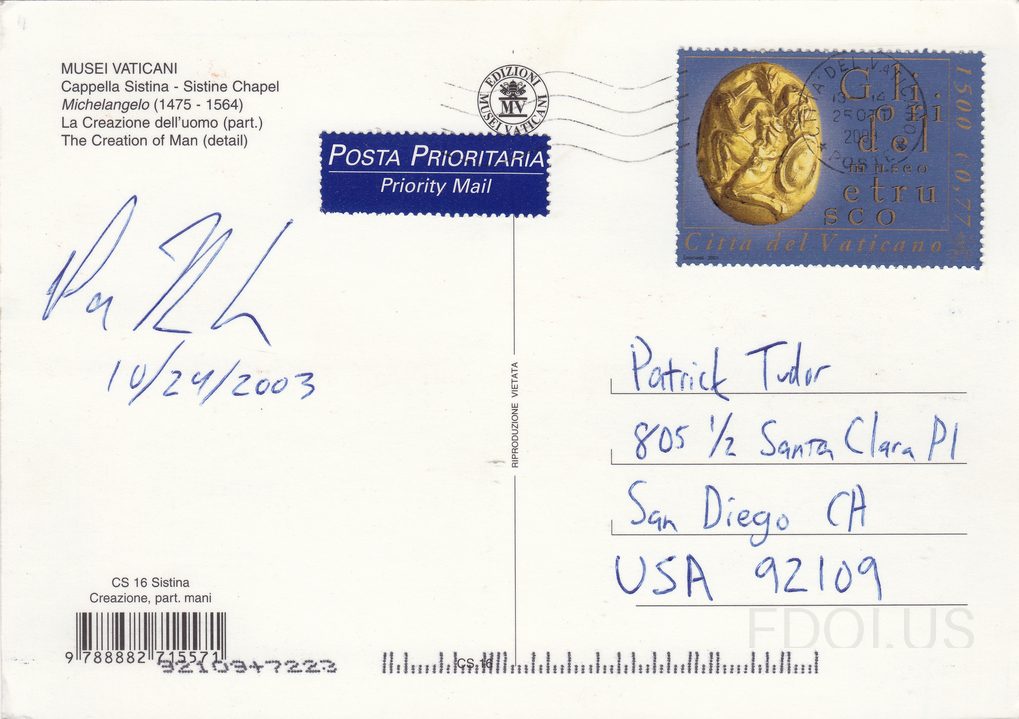 MUSEI VATICANI
Cappella Sistina - Sistine Chapel
Michelangelo (1475 - 1564)
La Creazione dell'uomo (part.)
The Creation of Man (detail)
EDIZIONI
MV
MUSEI VATICANI
POSTA PRIORITARIA
Priority Mail
Gli
ori
del
museo
etru
sco
1500 €0,77
Città del Vaticano
10/24/2003
RIPRODUZIONE VIETATA
Patrick Tudor
805 1/2 Santa Clara Pl
San Diego CA
USA 92109
CS 16 Sistina
Creazione, part. mani
9 788882 715571
9210947223
CS 16
EDOI.US